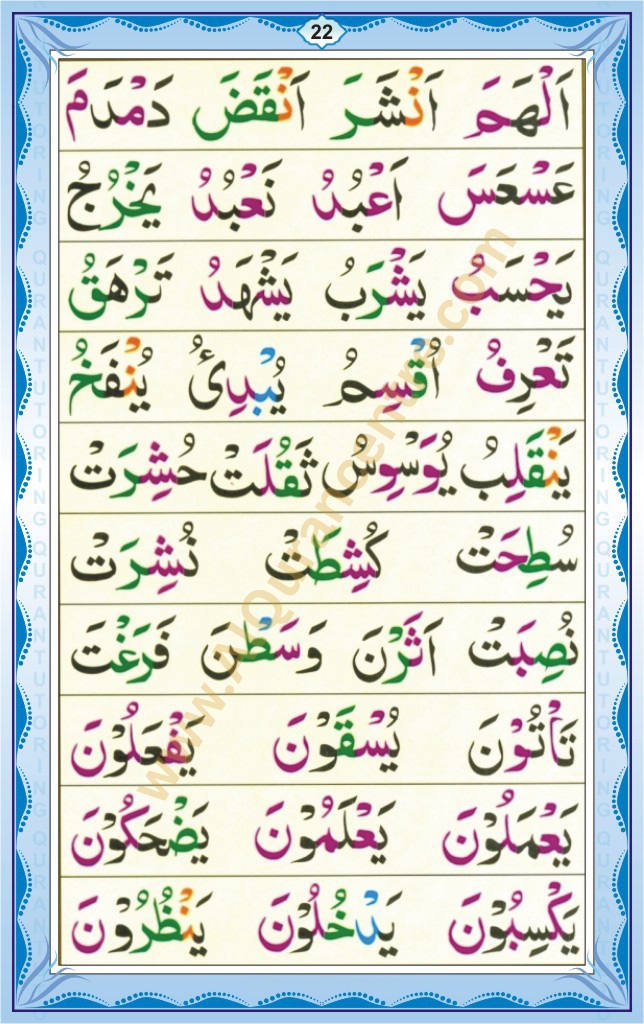 22
اَلْهَمَ اَنْشَرَ اَنْقَضَ دَمْدَمَ
عَسْعَسَ اَعْبُدُ نَعْبُدُ يَخْرُجُ
يَحْسَبُ يَشْرَبُ يَشْهَدُ تَرْهَقُ
تَعْرِفُ اُقْسِمُ يُبْدِئُ يُنْفَخُ
يَنْقَلِبُ يُوَسْوِسُ ثَقُلَتْ حُشِرَتْ
سُطِحَتْ كُشِطَتْ نُشِرَتْ
نُصِبَتْ اَثَرْنَ وَسَطْنَ فَرَغْتَ
تَأْتُوْنَ يُسْقَوْنَ يَفْعَلُوْنَ
يَعْمَلُوْنَ يَعْلَمُوْنَ يَضْحَكُوْنَ
يَكْسِبُوْنَ يَدْخُلُوْنَ يَنْظُرُوْنَ
www.AlQurancentre.com
QURAN TUTORING QURAN TUTORING QURAN TUTORING
QURAN TUTORING QURAN TUTORING QURAN TUTORING